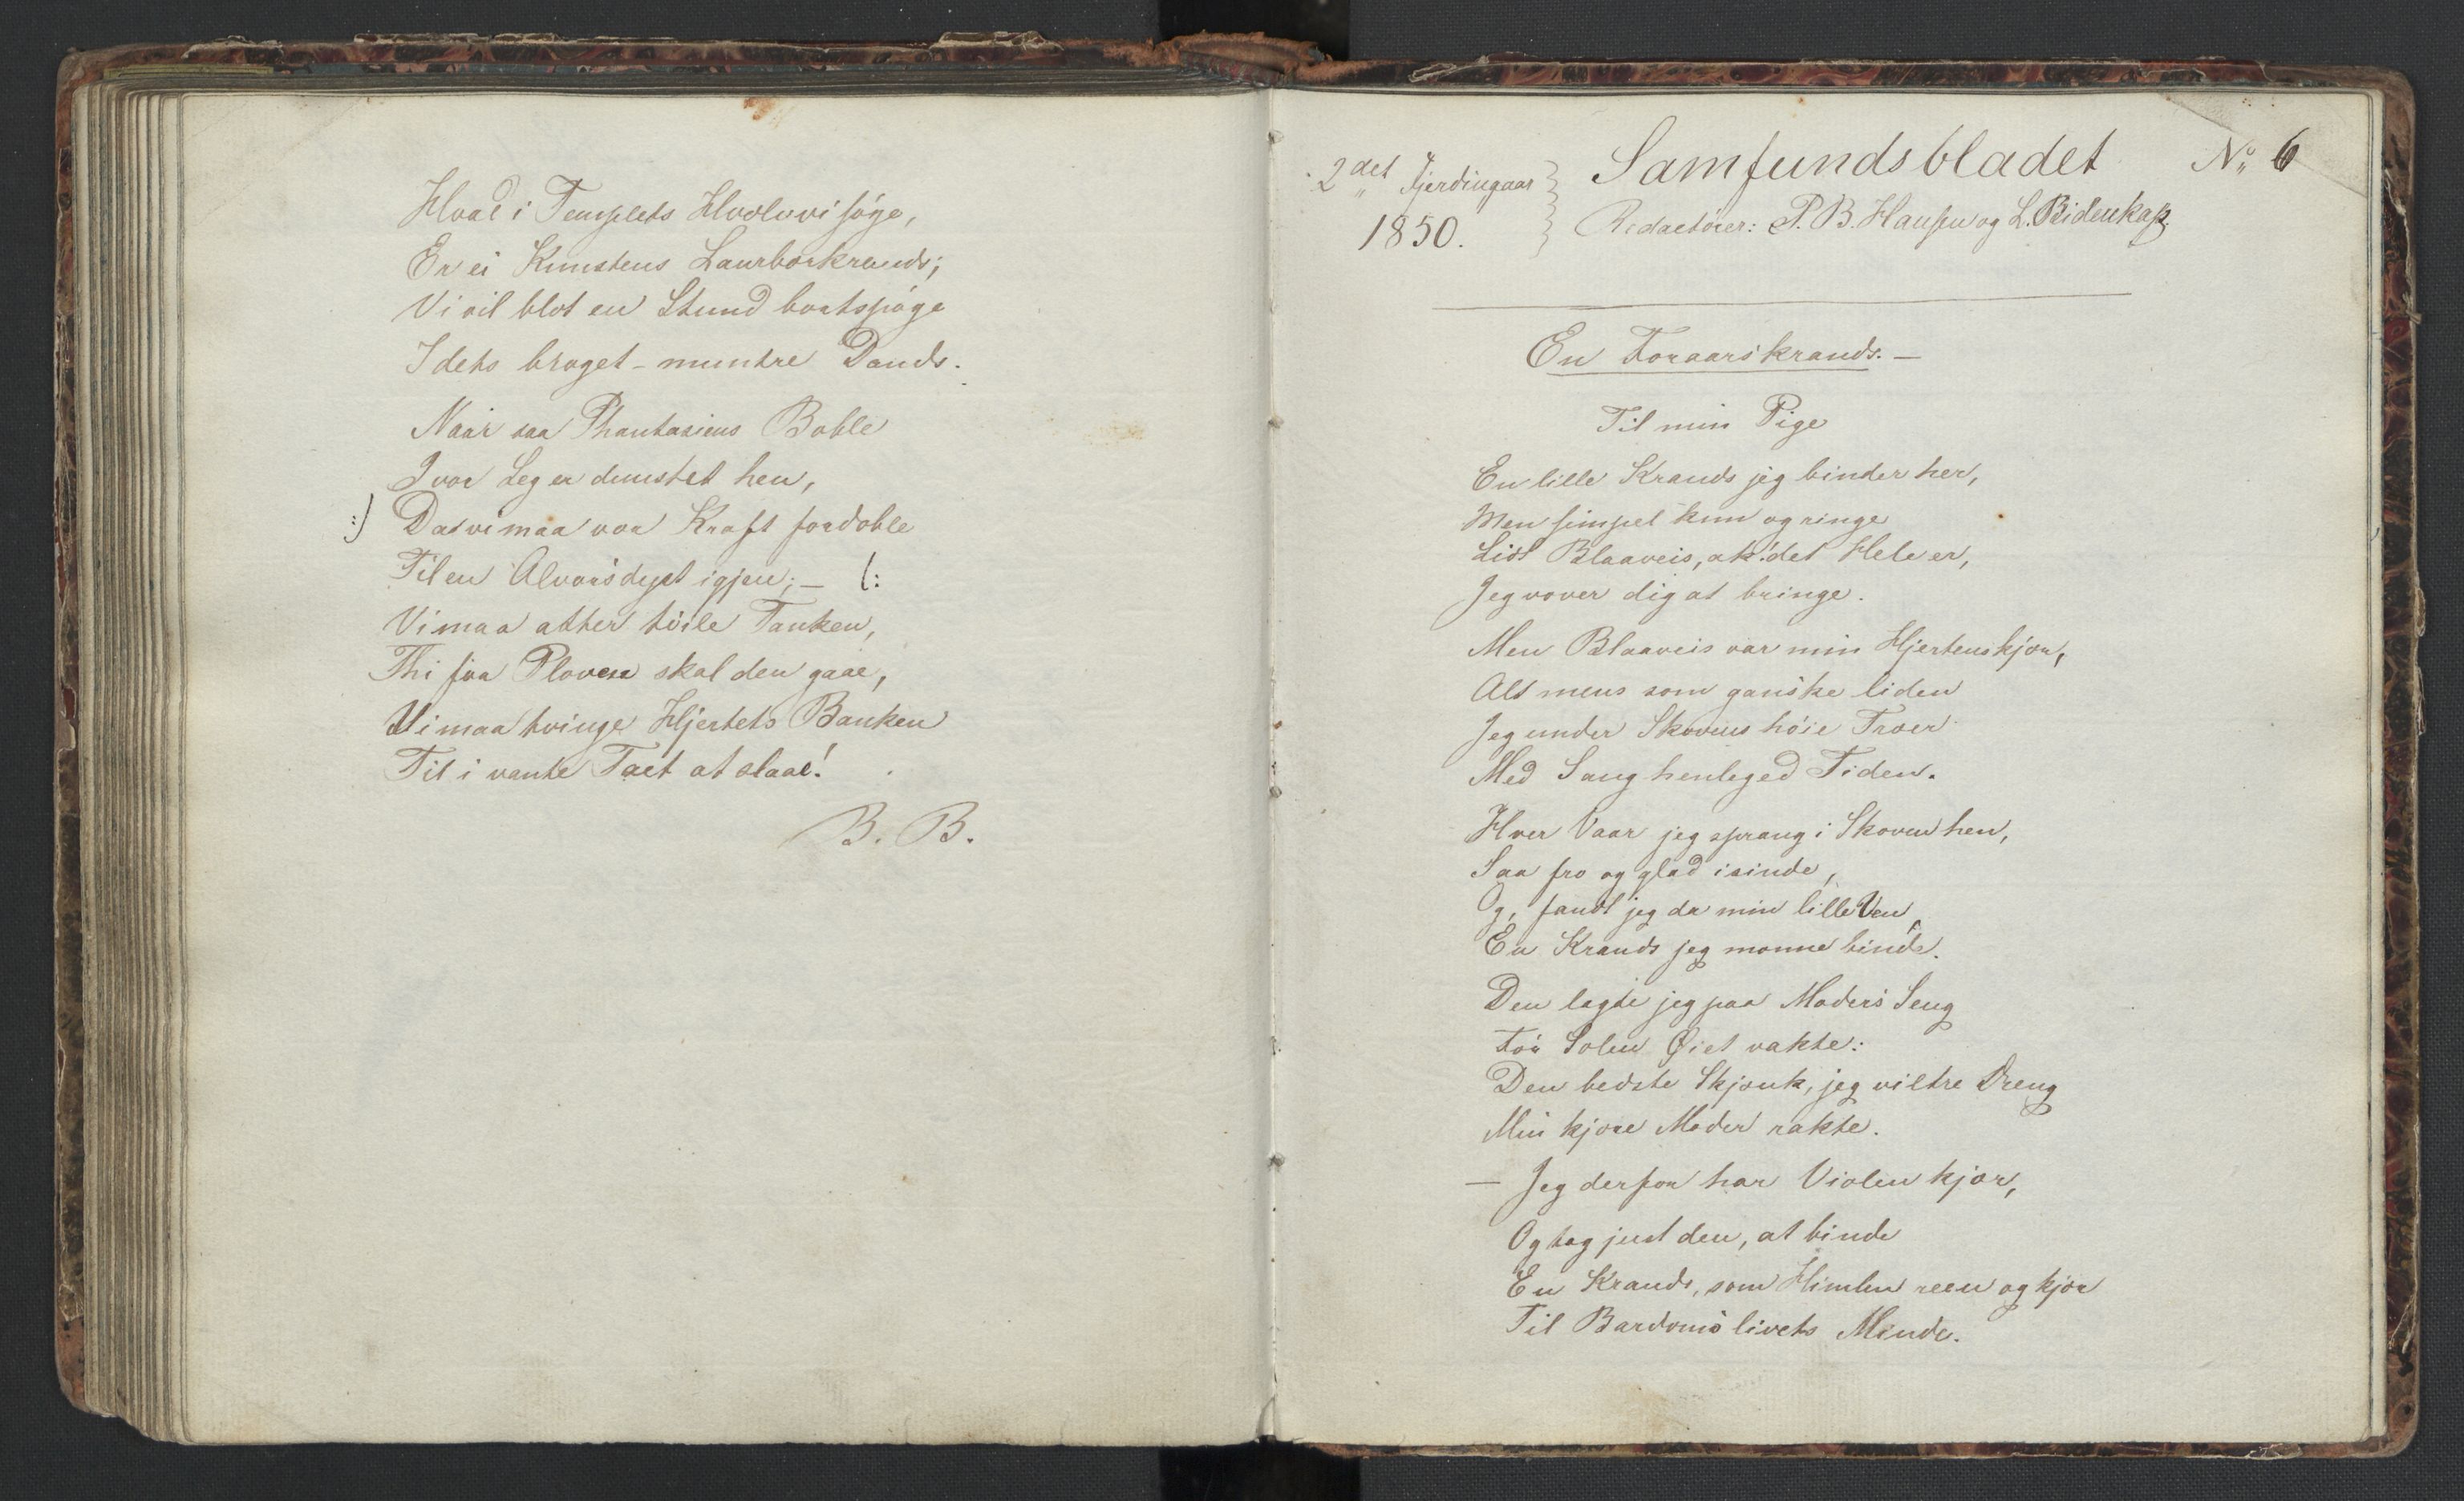 Hvad i Templets Hvælv vi søge,
Er ei Kunstens Laurbærkrands;
Vi vil blot en Stund bortspøge
I dets broget-muntre Dands.
Naar saa Phantasiens Boble
I vor Leg er dunstet hen,
:) Da vi maa vor Kraft fordoble
Til en Alvorsdyst igjen; — (:
Vi maa atter töile Tanken,
Thi fra Ploven skal den gaae,
Vi maa tvinge Hjertets Banken
Til i vante Tact at slaae!
B. B.
2det Fjerdingaar
1850.
Samfundsbladet
No 6
Redactörer: P. B. Hansen og L. Bidenkap.
En Foraarskrands. —
Til min Pige
En lille Krands jeg binder her,
Men simpel kun og ringe
Lidt Blaaveis, ak! det Hele er,
Jeg vover dig at bringe.
Men Blaaveis var min Hjertenskjær,
Alt mens som ganske liden
Jeg under Skovens höie Træer
Med Sang henleged Tiden.
Hver Vaar jeg sprang i Skoven hen,
Saa fro og glad isinde,
Og, fandt jeg da min lille Ven,
En Krands jeg monne binde.
Den lagde jeg paa Moders Seng
För Solen Øiet vakte:
Den bedste Skjænk, jeg viltre Dreng
Min kjære Moder rakte.
— Jeg derfor har Violen kjær,
Og tog just den, at binde
En Krands, som Himlen reen og kjær
Til Bardomslivets Minde.